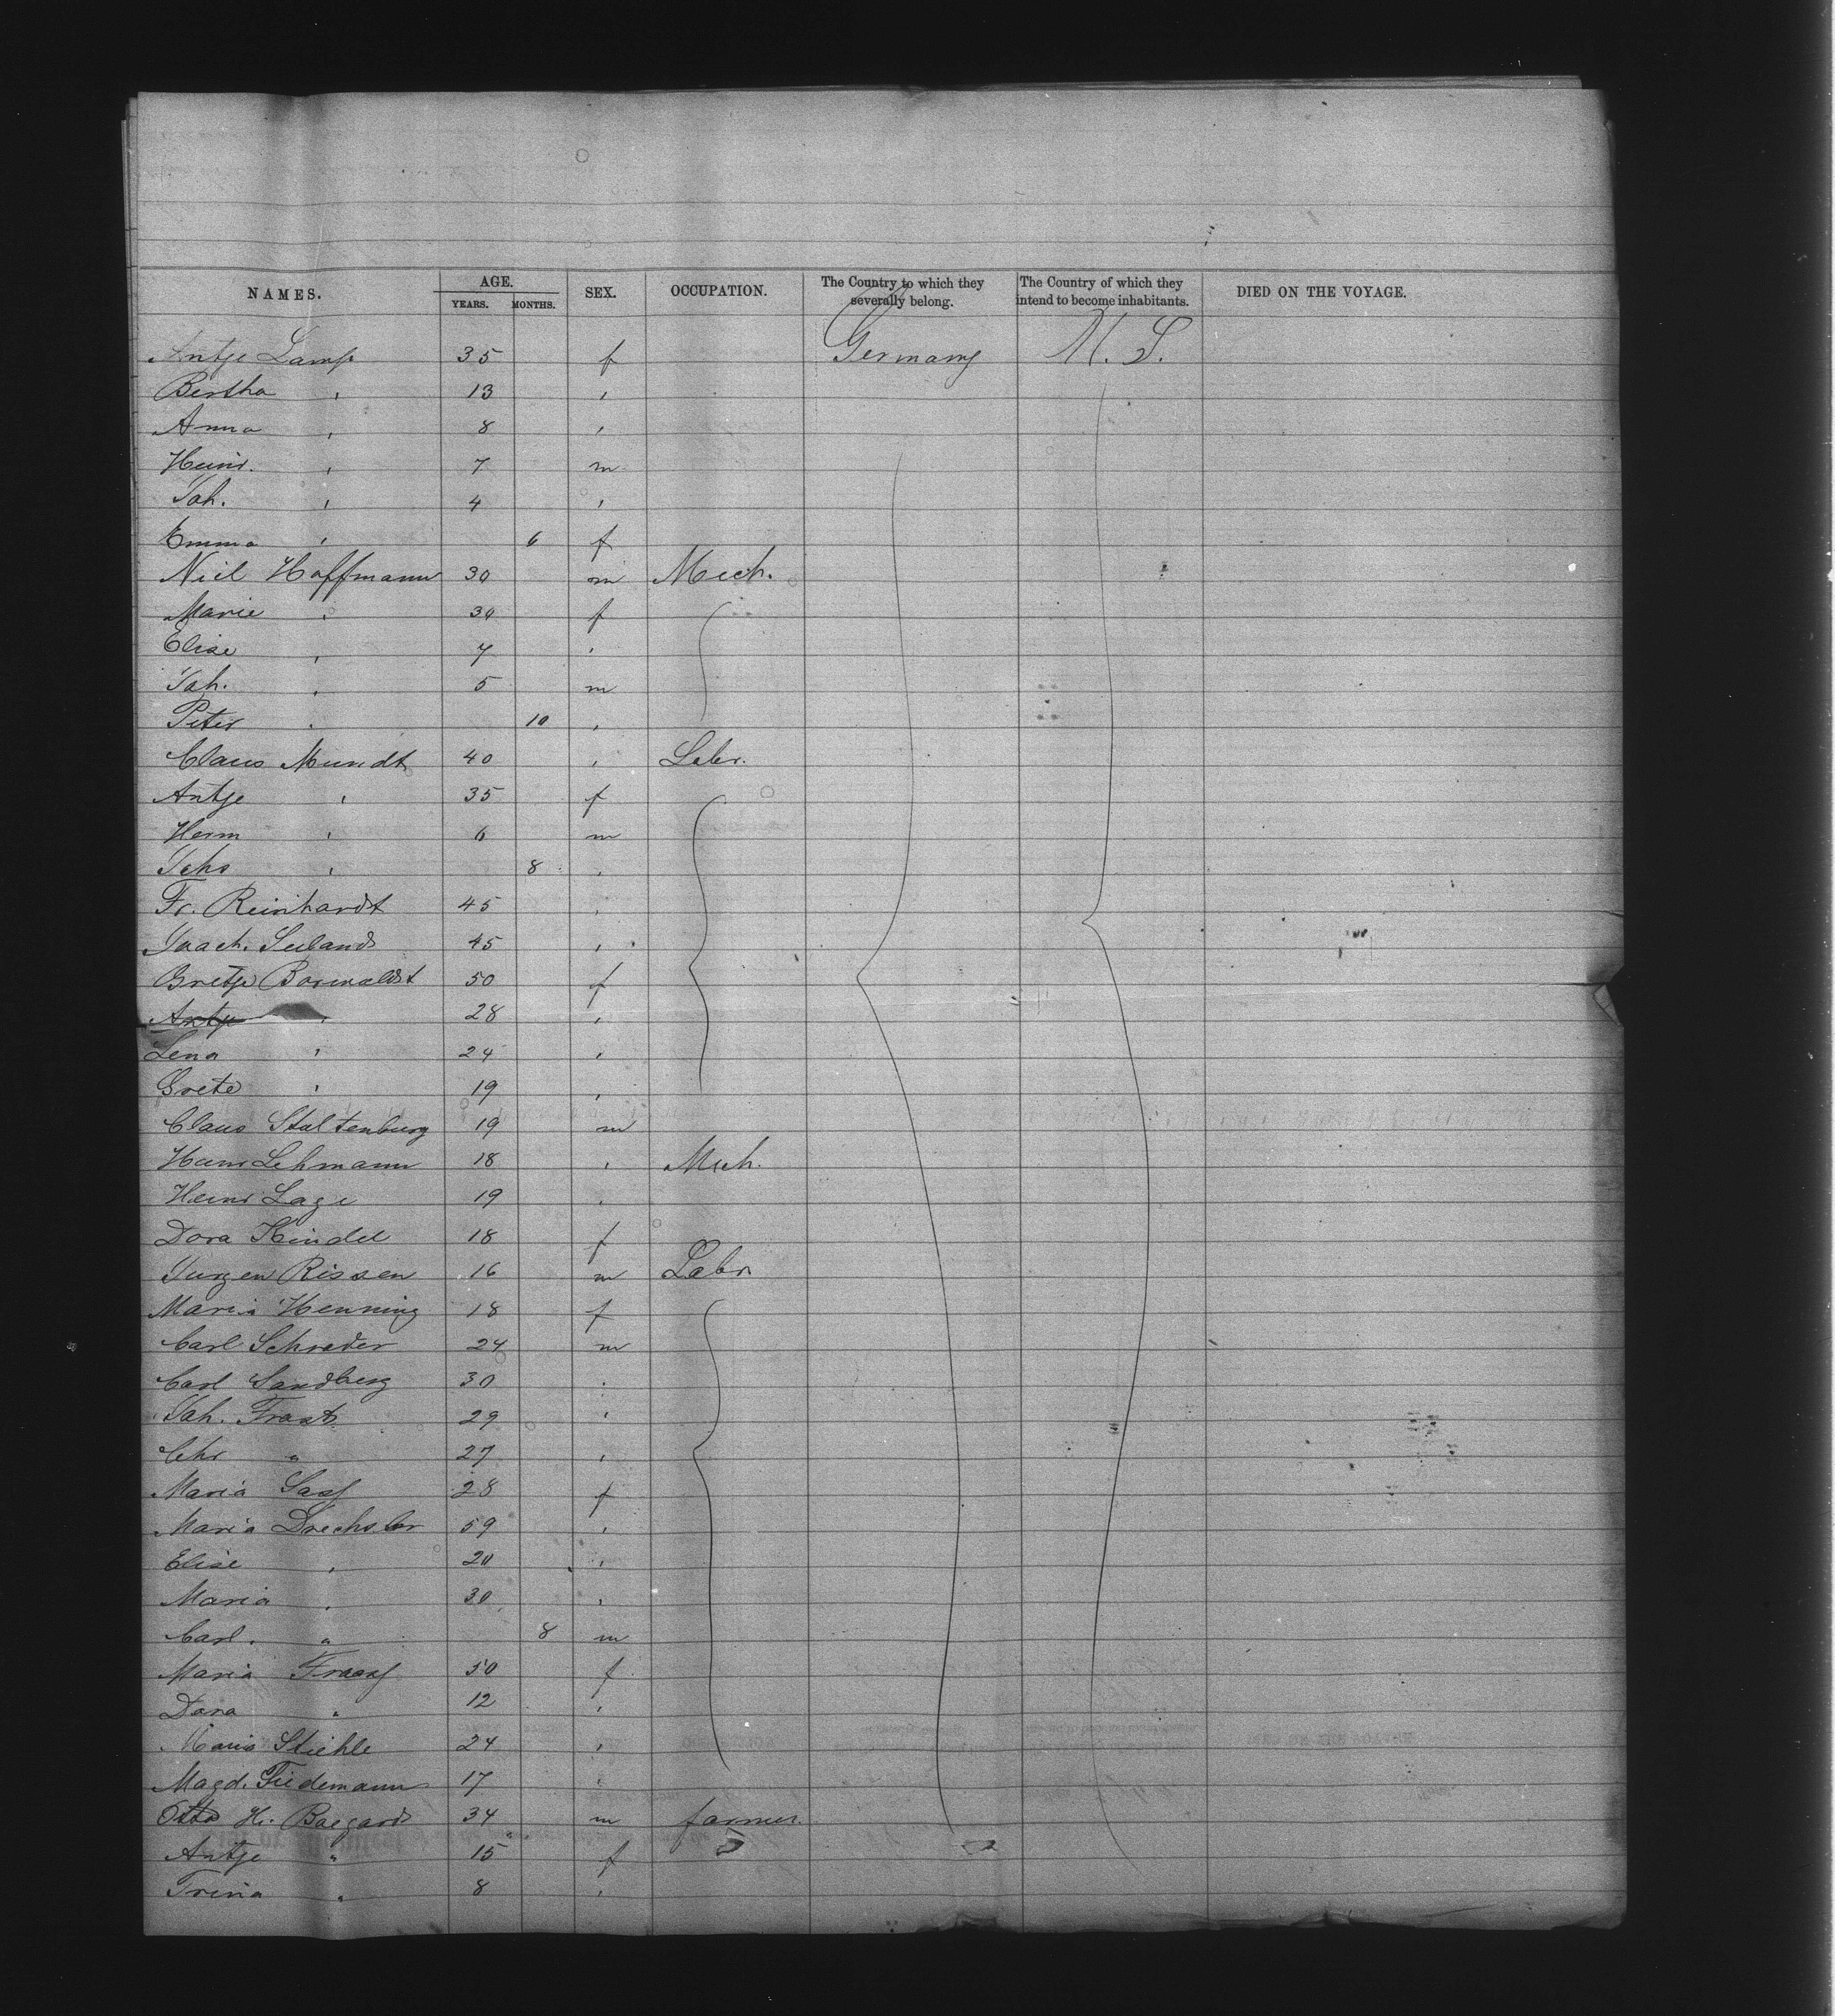 NAMES. AGE. SEX. OCCUPATION. The Country to which they severally belong. The Country of which they intend to become inhabitants. DIED ON THE VOYAGE.
YEARS. MONTHS.
Antje Lamp 35 f Germany U. S.
Bertha " 13 "
Anna " 8 "
Heinr. " 7 m
Joh. " 4 "
Emma " 6 f
Niel Hoffmann 30 m Mech.
Marie " 30 f
Elise " 7 "
Joh. " 5 m
Peter " 10 "
Claus Mundt 40 " Labr.
Antje " 35 f
Herm " 6 m
Johs " 8 "
Fr. Reinhardt 45 "
Joach. 45 "
Gretje 50 f
Antje " 28 "
Lena " 24 "
Grete " 19 "
Claus Stoltenburg 19 m
Hans Lehmann 18 " Mech.
Heinr Lage 19 "
Dora Hindel 18 f
Jurgen Rissen 16 m Labr.
Maria Henning 18 f
Carl Schroder 24 m
Carl Sandberg 30 "
Joh. 29 "
Chr " 27 "
Maria 28 f
Maria Drechsler 59 "
Elise " 20 "
Maria " 30 "
Carl. " 8 m
Maria 50 f
Dora " 12 "
Maria Stiehle 24 "
Magd. Tiedemann 17 "
Otto H. 34 m farmer.
Antje " 15 f
Trina " 8 "